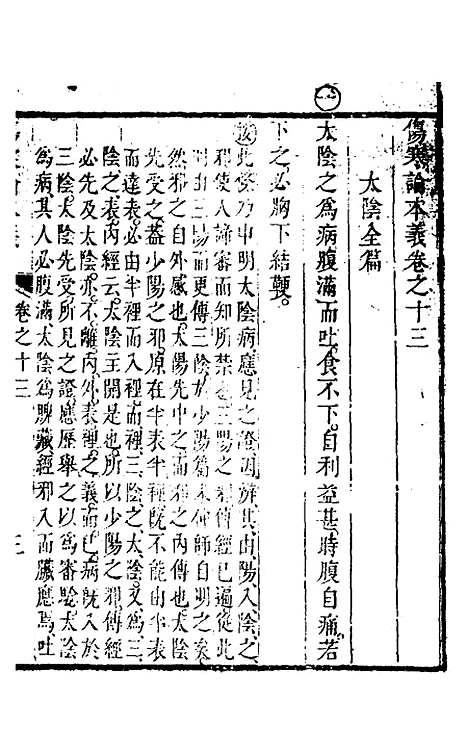 傷寒論本義卷之十三
太陰全篇
太陰之為病腹滿而吐食不下自利益甚時腹自痛若
下之必胸下結鞕
按此發乃申明太陰病應見之證因辨其由陽入陰之
邪使人諦審而知所禁也三陽之邪傳經已遍從此
則由三陽而更傳三陰於少陽篇末仲師自明之矣
然邪之自外感也太陽先中之而邪之內傳也太陰
先受之蓋少陽之邪原在半表半裡既不能由半表
而達表必由半裡而入裡而裡三陰之太陰又為三
陰之表內經云太陰主開是也所以少陽之邪傳經
必先及太陰亦不離內外表裡之義而已病既入於
三陰太陰先受所見之證應歷舉之以為審騐太陰
為病其人必腹滿太陰為脾藏經邪入而臟應焉吐
卷之十三